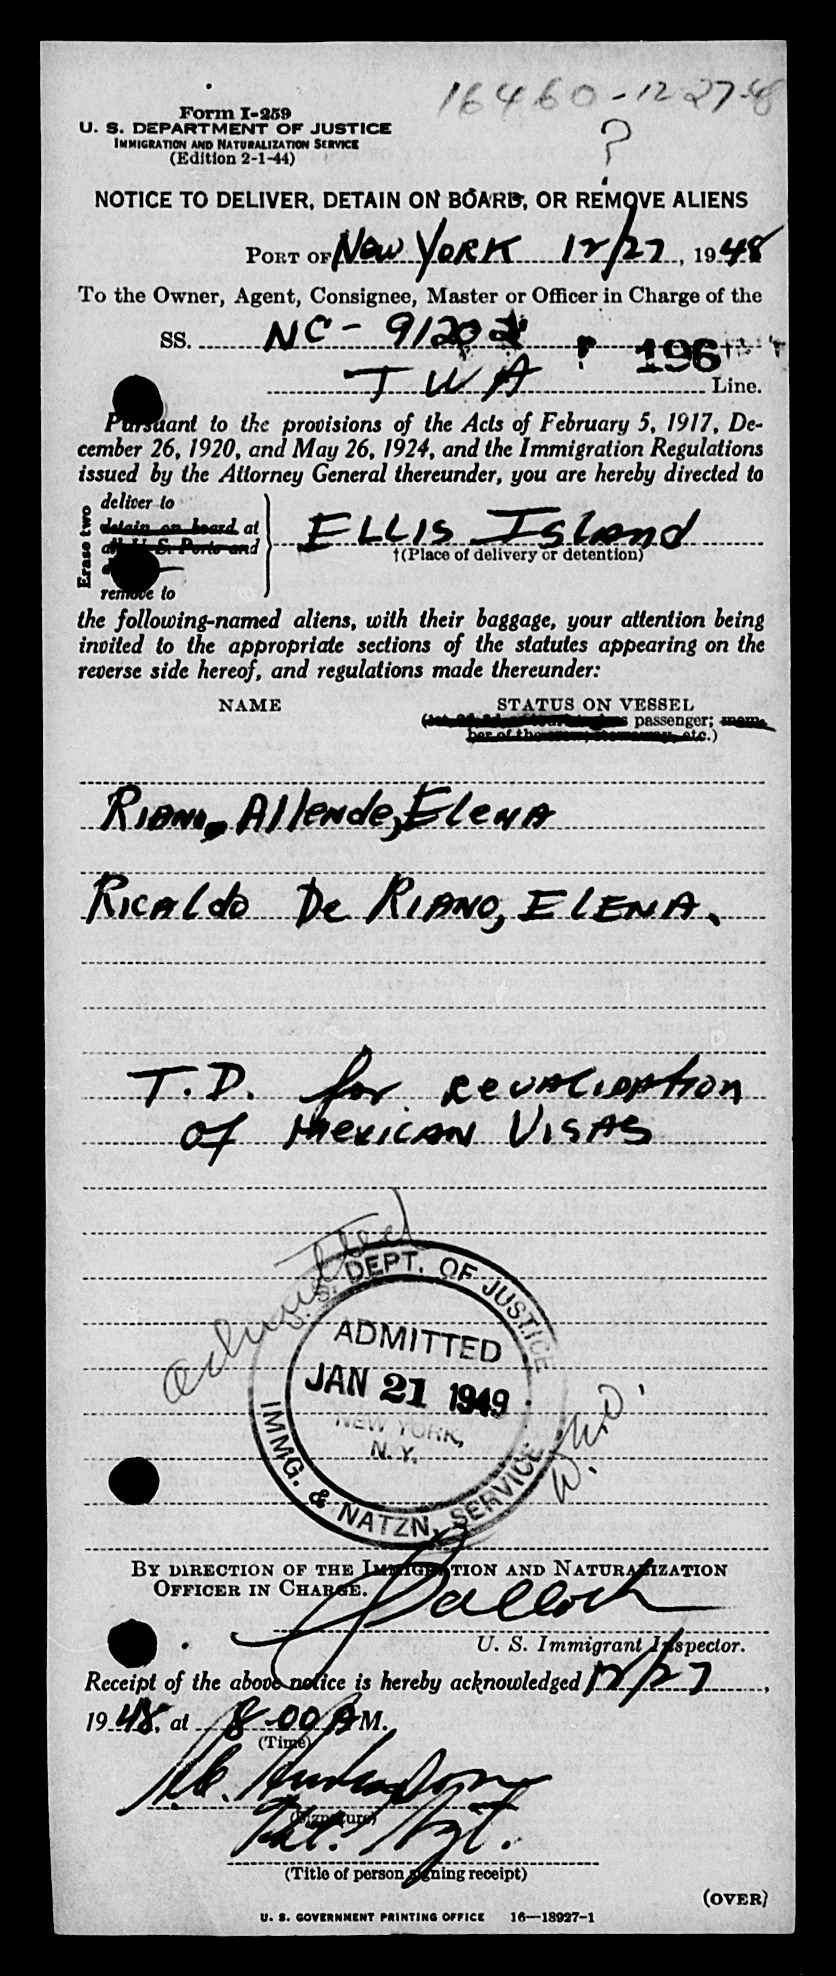 16460-12-27-48
?
Form I-259
U. S. DEPARTMENT OF JUSTICE
IMMIGRATION AND NATURALIZATION SERVICE
(Edition 2-1-44)
NOTICE TO DELIVER, DETAIN ON BOARD, OR REMOVE ALIENS
PORT OF New York 12/27, 1948
To the Owner, Agent, Consignee, Master or Officer in Charge of the
SS. NC-91202 196
TWA Line.
Pursuant to the provisions of the Acts of February 5, 1917, De-
cember 26, 1920, and May 26, 1924, and the Immigration Regulations
issued by the Attorney General thereunder, you are hereby directed to
Erase two
deliver to
detain on board at
all U. S. Ports and
remove to
ELLIS Island
†(Place of delivery or detention)
the following-named aliens, with their baggage, your attention being
invited to the appropriate sections of the statutes appearing on the
reverse side hereof, and regulations made thereunder:
NAME STATUS ON VESSEL
passenger; mem-
ber of the crew, stowaway, etc.)
Riano, Allende, Elena
Ricaldo De Riano, ELENA.
T.D. for revalidation
of Mexican Visas
admitted
U. S. DEPT. OF JUSTICE
ADMITTED
JAN 21 1949
NEW YORK,
N. Y.
IMMG. & NATZN. SERVICE
BY DIRECTION OF THE IMMIGRATION AND NATURALIZATION
OFFICER IN CHARGE.
U. S. Immigrant Inspector.
Receipt of the above notice is hereby acknowledged 12/27,
1948, at 8:00 A M.
(Time)
(Signature)
(Title of person signing receipt)
(OVER)
U. S. GOVERNMENT PRINTING OFFICE 16—18927-1